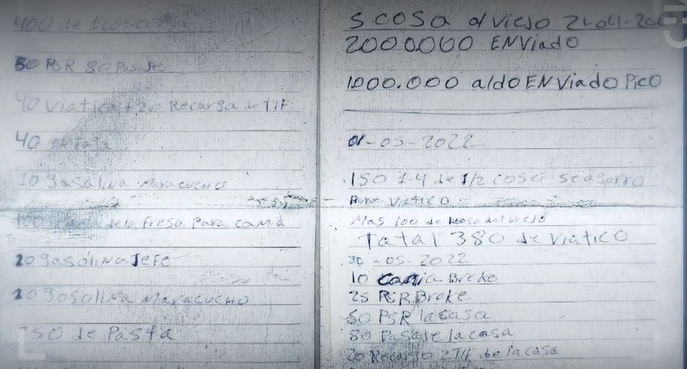 400 de
80 PSR 80 Pasaje
40 Viatico 20 Recarga de TlF
40
10 gasolina Maracucho
100 de la fresa Para comid
20 gasolina Jefe
20 gosolina Maracucho
250 de Pasta
S cosa al viejo 21-04-202
2000.000 ENViado
1000.000 aldo ENViado Pico
01-05-2022
150 1-4 de 1/2 cosa se agarro
Para Viatico
Mas 100 de cosa del viejo
Tatal 380 de Viatico
30-05-2022
10 Breke
25 PSR Breke
50 PSR la casa
80 Pasaje la casa
20 Recargo 2 Tlf de la casa